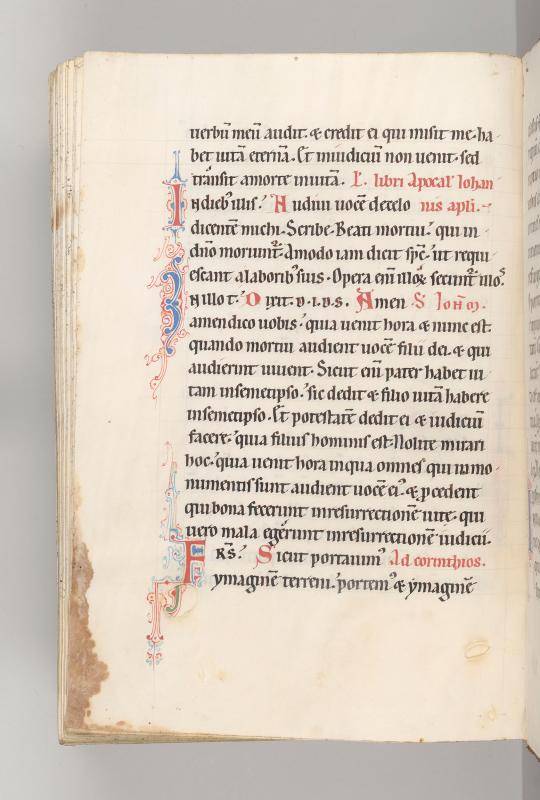 uerbũ meũ audit. & credit ei qui misit me. ha
bet uitã eternã. Et iniudiciũ non uenit. sed
trãnsit amorte inuitã. L. libri Apocal' Iohan
Indieb; illis. Audiui uocẽ decelo nis apl̃i.
dicentẽ michi. Scribe. Beati mortui. qui in
dño moriunt̃. Amodo iam dicit sp̃c. ut requi
escant alaborib; suis. Opera em̃ illoꝝ secunt̃ illos.
In illo t. Dixit. d.i.d.s. Amen S. Ioh̃em.
amendico uobis. quia uenit hora & nunc est.
quando mortui audient uocẽ filii dei. & qui
audierint uiuent. Sicut em̃ pater habet ui
tam insemetipso. sic dedit & filio uitã habere
insemetipso. Et potestatẽ dedit ei & iudiciũ
facere. quia filius hominis est. Nolite mirari
hoc. quia uenit hora inqua omnes qui inmo
numentis sunt audient uocẽ ei᷒. & ꝓcedent
qui bona fecerunt inresurrectionẽ uite. qui
uero mala egerunt inresurrectionẽ iudicii.
FRS̃. Sicut portauim᷒ Ad corinthios.
ymaginẽ terreni. portem᷒ & ymaginẽ